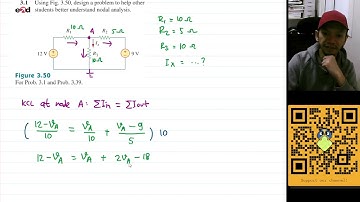 3.1 Using Fig. 3.50, design a problem to help other
students better understand nodal analysis.
R₁ = 10 Ω
R₂ = 5 Ω
R₃ = 10 Ω
Iₓ = ... ?
A
R₁ 10Ω
R₂ 5Ω
Iₓ
12 V
9 V
R₃
10Ω
Figure 3.50
For Prob. 3.1 and Prob. 3.39.
KCL at node A : ΣIin = ΣIout
( (12-VA)/10 = VA/10 + (VA-9)/5 ) 10
12-VA = VA + 2VA-18